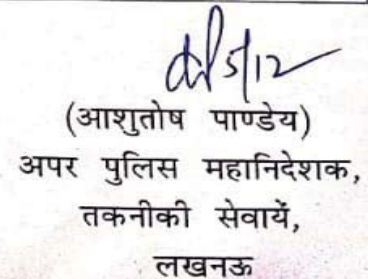 5/12
(आशुतोष पाण्डेय)
अपर पुलिस महानिदेशक,
तकनीकी सेवायें,
लखनऊ